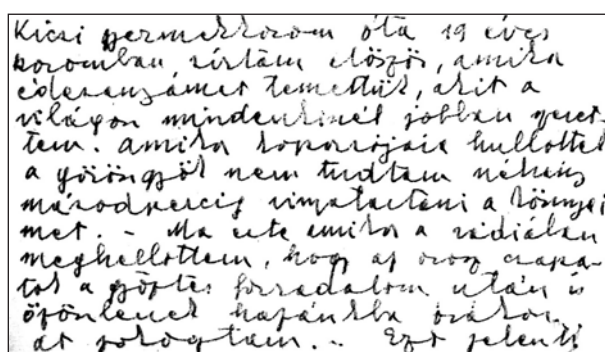 Kicsi gyermekkorom óta 19 éves
koromban sírtam először, amikor
édesanyámat temettük, akit a
világon mindenkinél jobban szeret-
tem. Amikor koporsójára hullottak
a göröngyök nem tudtam néhány
másodpercig visszatartani a könnyei-
met. - Ma este amikor a rádióban
meghallottam, hogy az orosz csapa-
tok a győztes forradalom után is
özönlenek hazánkba órákon
át zokogtam. - Ezt jelenti